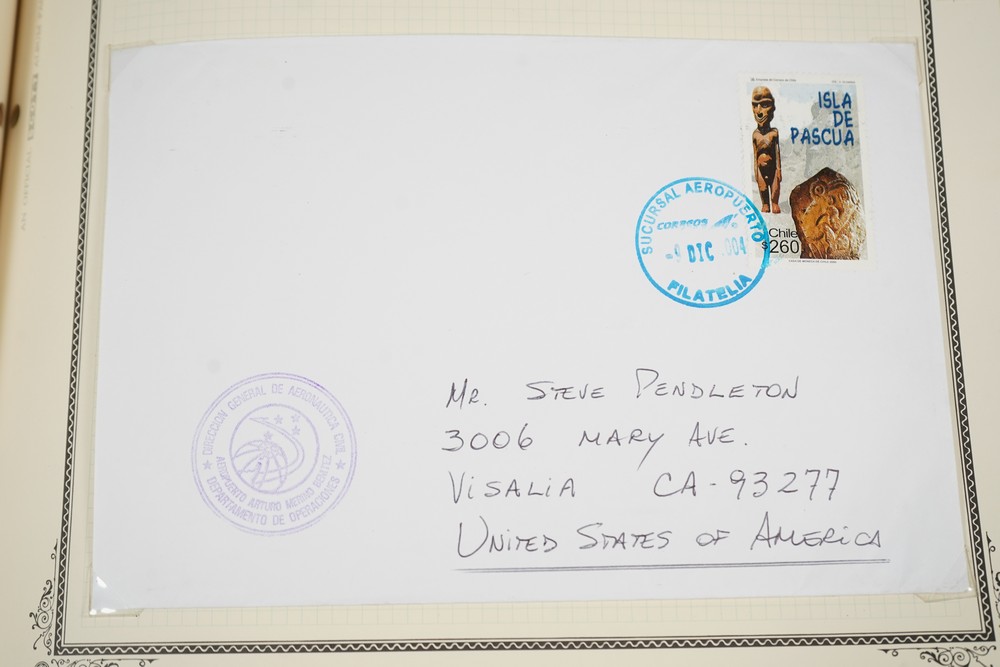 ISLA
DE
PASCUA
Chile
$260
SUCURSAL AEROPUERTO
CORREOS
-9 DIC 004
FILATELIA
Mr. STEVE PENDLETON
3006 MARY AVE.
VISALIA CA-93277
UNITED STATES OF AMERICA
DIRECCION GENERAL DE AERONAUTICA CIVIL
AEROPUERTO ARTURO MERINO BENITEZ
DEPARTAMENTO DE OPERACIONES
AN OFFICIAL